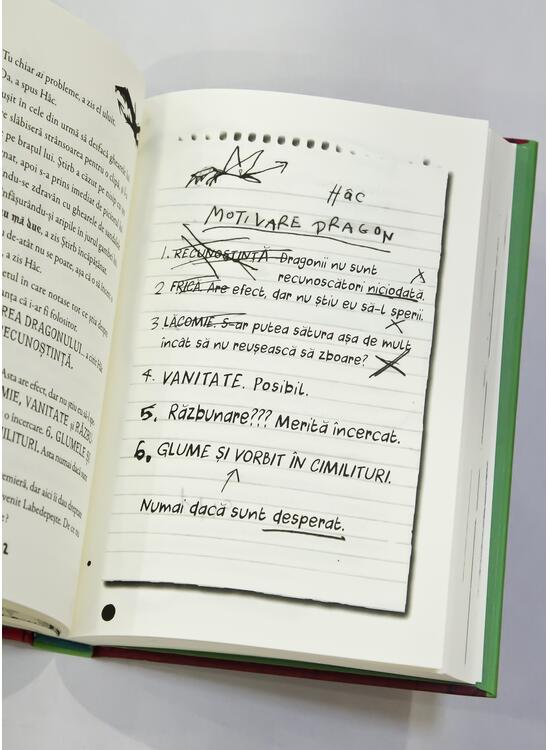 Tu chiar ai probleme, a zis el uluit.
Da, a spus Hâc.
ușit în cele din urmă să desfacă ghearele lui
re slăbiseră strânsoarea pentru o clipă, și l-a
pe brațul lui. Știrb a căzut pe
nat, apoi s-a prins imediat de piciorul lui
ndu-se zdravăn cu ghearele de sandalele
nfășurându-și aripile în jurul gambei lui.
nu mă duc, a zis Știrb încăpățânat.
u de-atât nu se poate, așa că o să
, a zis Hâc.
etul în care notase tot ce știa despre
anța că i-ar fi folositor.
REA DRAGONULUI... a citit Hâc
RECUNOȘTINȚĂ.
Asta are efect, dar nu știu eu să-l sper
MIE, VANITATE și RĂZBU
o încercare. 6. GLUMELE ȘI
MILITURI. Asta numai dacă sunt
remieră, dar aici îi dau dreptate
venit Labedepește. De ce nu
e?
2
Hâc
MOTIVARE DRAGON
1. RECUNOȘTINȚĂ Dragonii nu sunt
recunoscători niciodată.
2 FRICĂ. Are efect, dar nu știu eu să-l sperii.
3 LĂCOMIE. S-ar putea sătura așa de mult
încât să nu reușească să zboare?
4. VANITATE. Posibil.
5. Răzbunare??? Merită încercat.
6. GLUME ȘI VORBIT ÎN CIMILITURI.
Numai dacă sunt desperat.